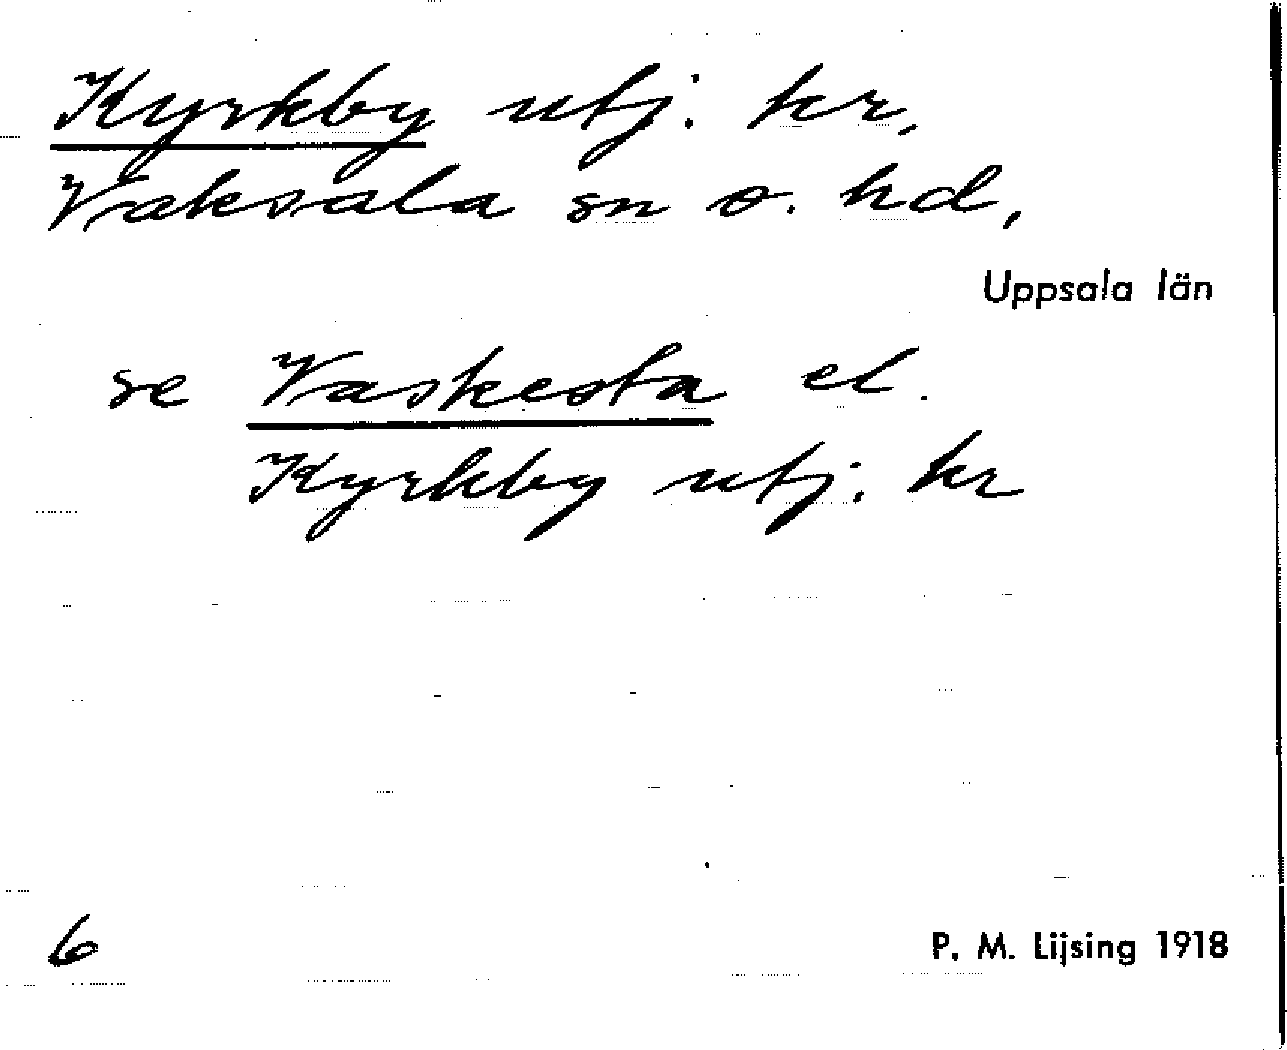 Kyrkby utj. kr,
Vaksala sn o. hd,
Uppsala län
se Vaskesta el.
Kyrkby utj. kr
6
P. M. Lijsing 1918